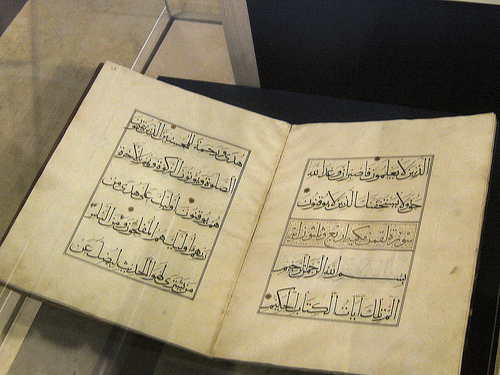 الذين لا يعلمون فاصبر ان وعد الله
حق ولا يستخفنك الذين لا يوقنون
سورة لقمن مكية اربع وثلثون اية
بسم الله الرحمن الرحيم
الم تلك آيات الكتاب الحكيم
هدى ورحمة للمحسنين الذين يقيمون
الصلوة ويؤتون الزكوة وهم بالاخرة
هم يوقنون اولئك على هدى من
ربهم واولئك هم المفلحون ومن الناس
من يشترى لهو الحديث ليضل عن